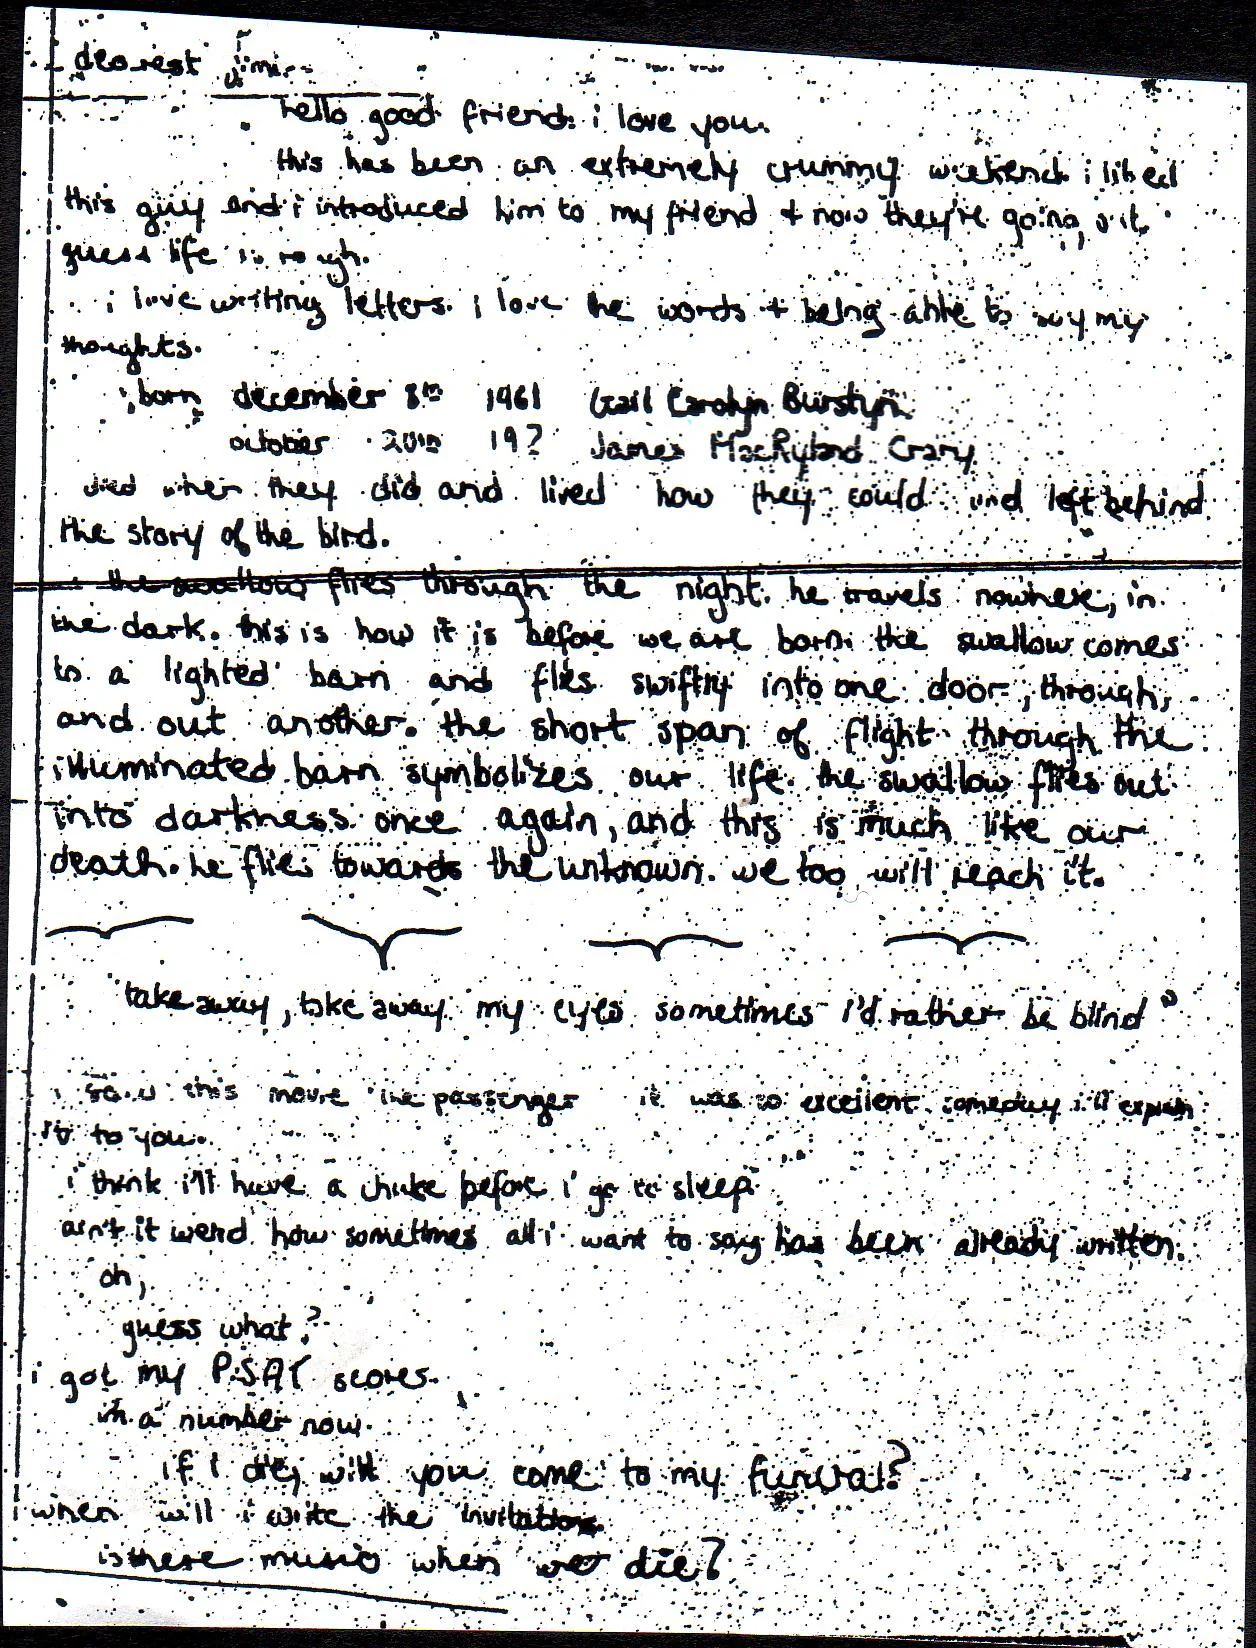 dearest jimi
hello good friend. i love you.
this has been an extremely crummy weekend. i liked
this guy and i introduced him to my friend + now they're going out.
guess life is rough.
i love writing letters. i love the words + being able to say my
thoughts.
born december 8th 1961 Gail Carolyn Burstyn
october 20th 19? James MacRyland Crary
died when they did and lived how they could and left behind
the story of the bird.
the swallow flies through the night. he travels nowhere, in
the dark. this is how it is before we are born. the swallow comes
to a lighted barn and flies swiftly into one door, through,
and out another. the short span of flight through the
illuminated barn symbolizes our life. the swallow flies out
into darkness once again, and this is much like our
death. he flies towards the unknown. we too will reach it.
"take away, take away my eyes sometimes i'd rather be blind"
i saw this movie the passenger it was so excellent. someday i'll explain
it to you.
i think i'll have a before i go to sleep.
ain't it weird how sometimes all i want to say has been already written.
oh,
guess what?
i got my P.S.A.T scores.
i'm a number now.
if I die, will you come to my funeral?
when will i write the invitations
is there music when we die?